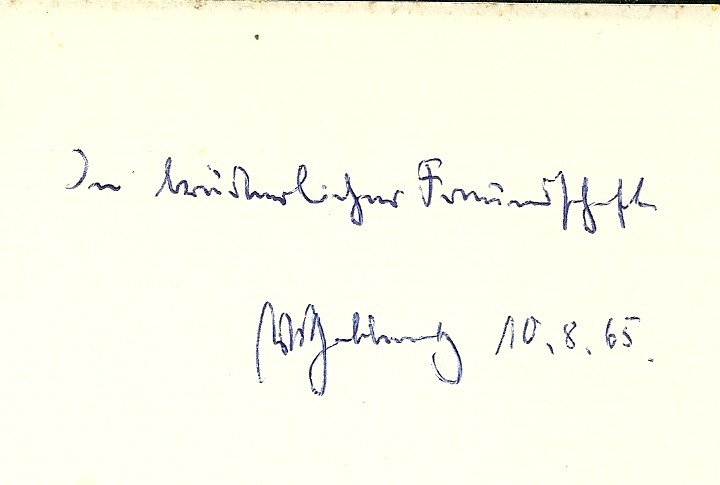 In brüderlicher Freundschaft
10.8.65.